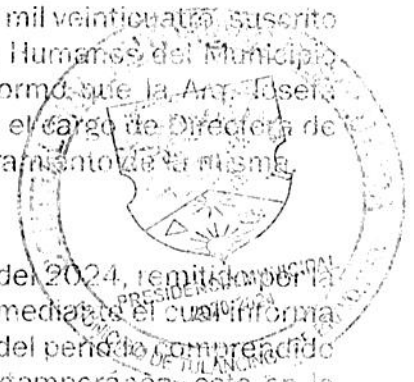 mil veinticuatro, suscrito
Humanos del Municipio
ormó que la Arq. Josefa
el cargo de Directora de
ramiento de la misma.
del 2024, remitido por la
mediante el cual informa
del periodo comprendido
PRESIDENCIA MUNICIPAL
DE TULANCINGO